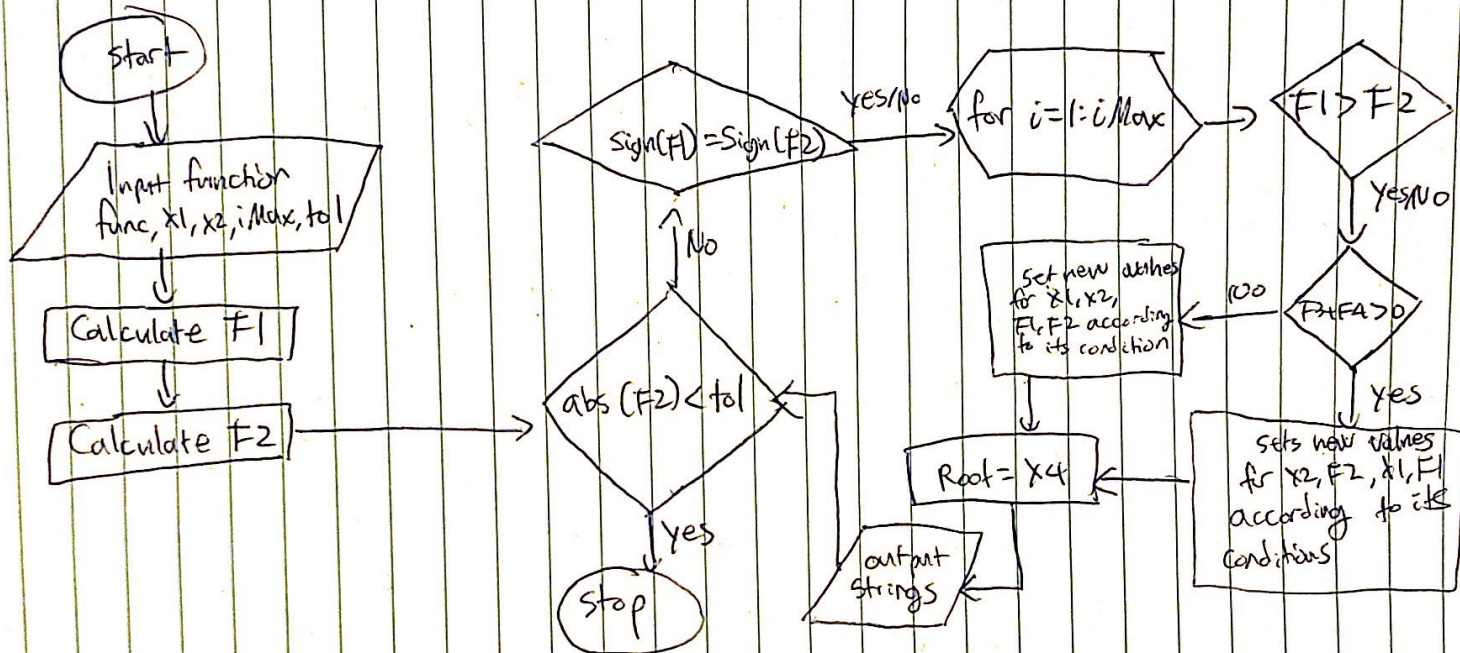 Start
Input function
func, x1, x2, iMax, tol
Calculate F1
Calculate F2
abs (F2) < tol
Yes
Stop
No
Sign(F1) = Sign(F2)
Yes/No
for i=1:iMax
F1 > F2
Yes/No
F3*F4>0
No
Set new values
for x1, x2,
F1, F2 according
to its condition
Yes
Sets new values
for x2, F2, x1, F1
according to its
conditions
Root = x4
output
strings